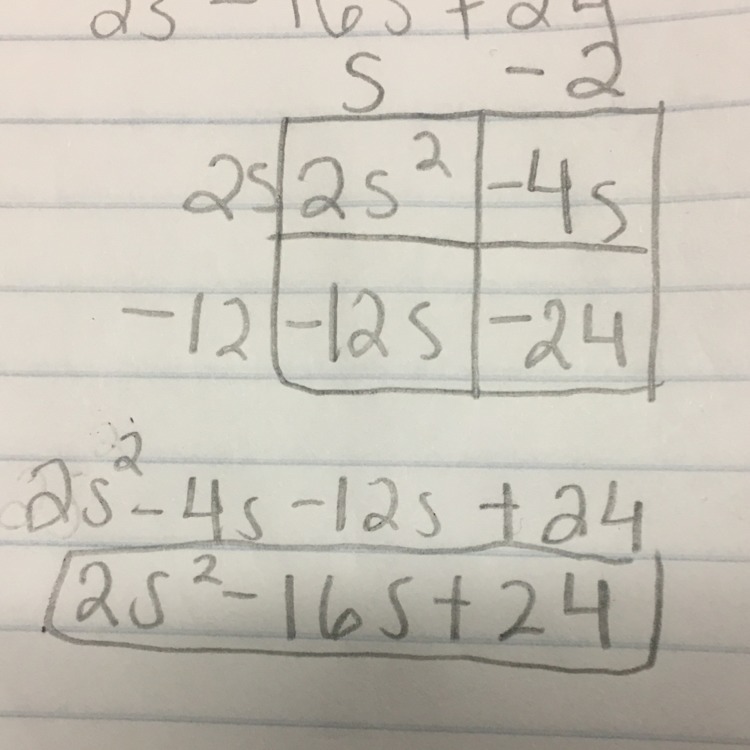 2s - 16s + 24
s - 2
2s 2s² -4s
-12 -12s -24
2s² - 4s - 12s + 24
2s² - 16s + 24